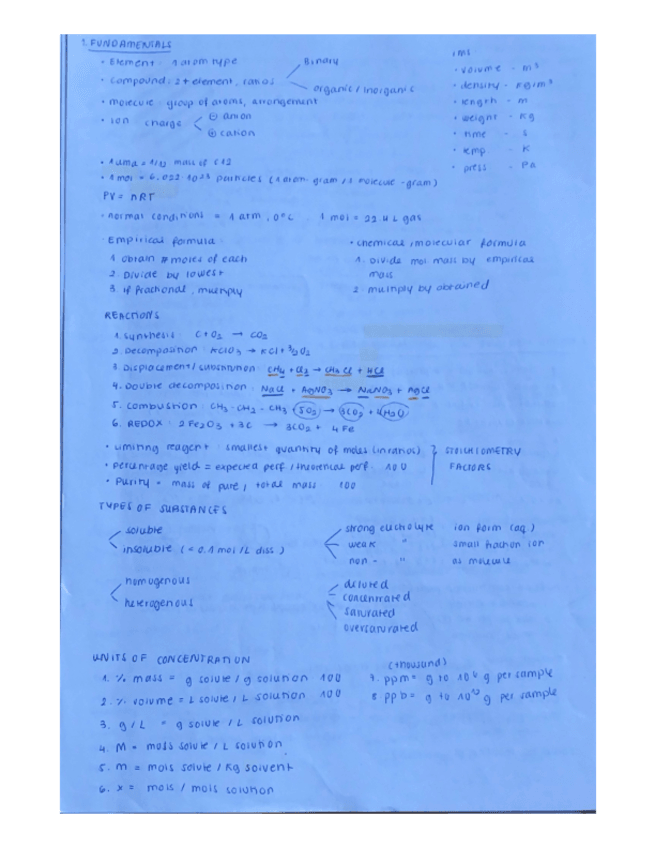 1. FUNDAMENTALS
• Element: 1 atom type
Binary
• compound: 2+ element, ratios
organic / inorganic
• molecule: group of atoms, arrangement
• Ion charge
⊖ anion
⊕ cation
• volume - m³
• density - kg/m³
• length - m
• weight - kg
• time - s
• temp. - K
• press - Pa
• 1 uma = 1/12 mass of C12
• 1 mol = 6.022·10²³ particles (1 atom-gram / 1 molecule-gram)
PV = nRT
• normal conditions = 1 atm, 0°C 1 mol = 22.4 L gas
· Empirical formula:
1. obtain # moles of each
2. Divide by lowest
3. if fractional, multiply
• chemical / molecular formula
1. Divide mol mass by empirical mass
2. multiply by obtained
REACTIONS
1. Synthesis: C + O₂ → CO₂
2. Decomposition: KClO₃ → KCl + 3/2 O₂
3. Displacement / substitution: CH₄ + Cl₂ → CH₃Cl + HCl
4. Double decomposition: NaCl + AgNO₃ → NaNO₃ + AgCl
5. Combustion: CH₃-CH₂-CH₃ 5O₂ → 3CO₂ + 4H₂O
6. REDOX: 2Fe₂O₃ + 3C → 3CO₂ + 4Fe
• Limiting reagent: smallest quantity of moles (in ratios)
• percentage yield = expected perf / theoretical perf · 100
• Purity = mass of pure / total mass · 100
STOICHIOMETRY
FACTORS
TYPES OF SUBSTANCES
soluble
insoluble (<0.1 mol/L diss.)
strong electrolyte ion form (aq)
weak " small fraction ion
non- " as molecule
homogenous
heterogenous
diluted
concentrated
saturated
oversaturated
UNITS OF CONCENTRATION
1. % mass = g solute / g solution · 100
2. % volume = L solute / L solution · 100
3. g/L = g solute / L solution
4. M = mols solute / L solution
5. m = mols solute / kg solvent
6. x = mols / mols solution
(thousand)
7. ppm = g to 10⁶ g per sample
8. ppb = g to g per sample